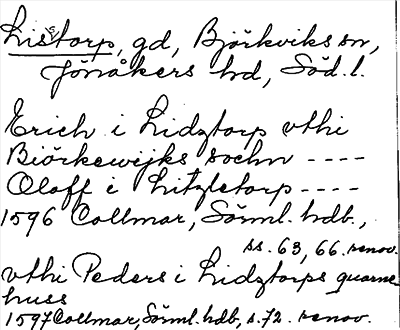 Listorp, gd, Björkviks sn,
Jönåkers hd, Söd. l.
Erich i Lidztorp vthi
Biörkewijks sochn ----
Oloff i Litzletorp ----
1596 Collmar, Sörml. hdb.,
ss. 63, 66. renov.
vthi Peders i Lidztorps quarne
huss
1597 Collmar, Sörml. hdb, s. 72. renov.